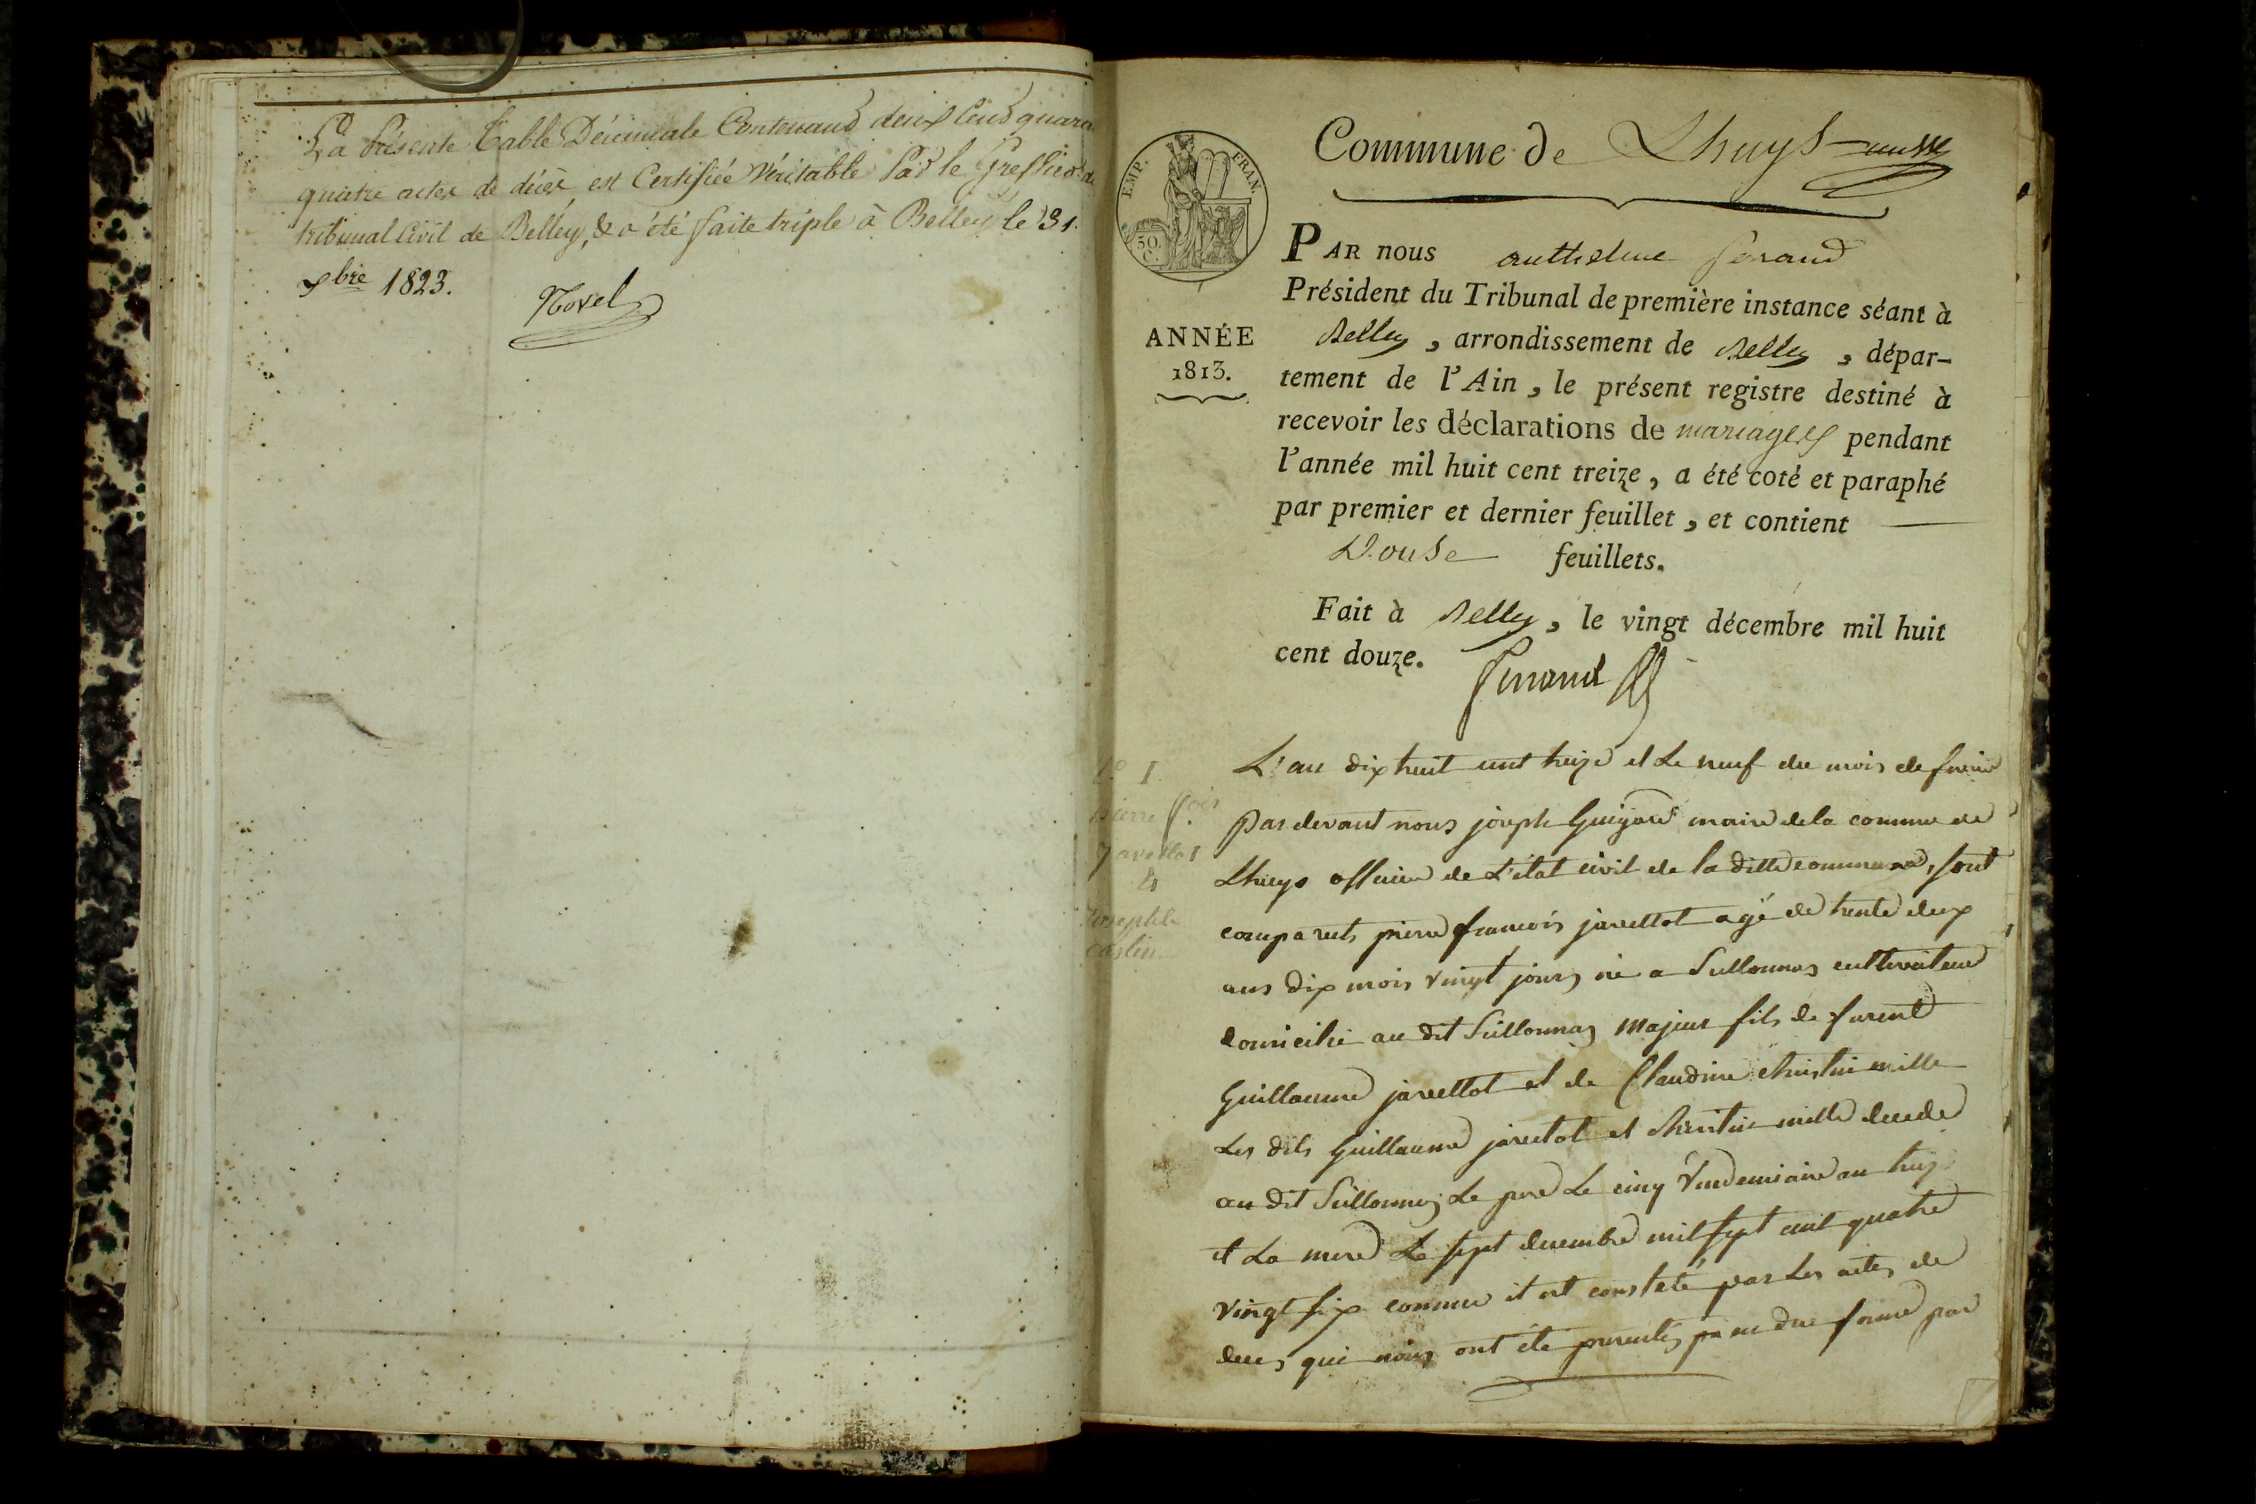 La présente Table Décennale Contenant deux Cent quara
quatre actes de décès est Certifiée Véritable Par le Greffier du
tribunal Civil de Belley, & a été faite triple à Belley le 31.
xbre 1823.
Novel
Commune de Lhuys
EMP. FRAN.
50 C.
PAR nous anthelme ferrand
Président du Tribunal de première instance séant à
Belley, arrondissement de Belley, dépar-
tement de l'Ain, le présent registre destiné à
recevoir les déclarations de mariages pendant
l'année mil huit cent treize, a été coté et paraphé
par premier et dernier feuillet, et contient
Douse feuillets.
ANNÉE
1813.
Fait à Belley, le vingt décembre mil huit
cent douze.
ferrand
No 1
pierre fois
javellot
&
Josephte
L'an dix huit cent treize et Le neuf du mois de
par devant nous joseph Guigard maire de la commune de
Lhuys officier de L'état civil de la ditte commune, sont
comparuts pierre francois javellot agé de trente deux
ans dix mois vingt jours né a Sillonnas cultivateur
domicilié au dit Sillonnas majeur fils de furent
Guillaume javellot et de Claudine christin mille
Les dits Guillaume javellot et christin mille decede
au dit Sillonnas Le pere Le cinq Vendemiaire an
et La mere Le sept decembre mil sept cent quatre
vingt six comme il est constaté par Les actes de
deces qui nous ont été presentes en due forme par